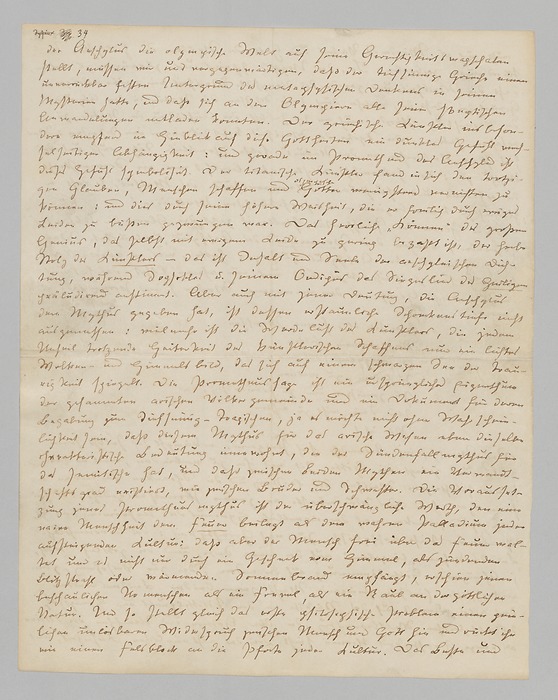 39
der Aeschylus die olympische Welt auf seine Gerechtigkeitswagschalen
stellt, müssen wir uns vergegenwärtigen, daß der tiefsinnige Grieche einen
unverrückbar festen Untergrund des metaphysischen Denkens in seinen
Mysterien hatte, und daß sich an den Olympiern alle seine skeptischen
Anwandelungen entladen konnten. Der griechische Künstler insbeson-
dere empfand im Hinblick auf diese Gottheiten ein dunkles Gefühl wech-
selseitiger Abhängigkeit: und gerade im Prometheus des Aeschylus ist
dieses Gefühl symbolisirt. Der titanische Künstler fand in sich den trotzi-
gen Glauben, Menschen schaffen und olympische Götter wenigstens vernichten zu
können: und dies durch seine höhere Weisheit, die er freilich durch ewiges
Leiden zu büßen gezwungen war. Das herrliche „Können" des großen
Genius, das selbst mit ewigem Leide zu gering bezahlt ist, der herbe
Stolz des Künstlers — das ist Inhalt und Seele der aeschyleischen Dich-
tung, während Sophokles in seinem Oedipus das Siegeslied des Heiligen
präludirend anstimmt. Aber auch mit jener Deutung, die Aeschylus
dem Mythus gegeben hat, ist dessen erstaunliche Schreckenstiefe nicht
ausgemessen: vielmehr ist die Werdelust des Künstlers, die jedem
Unheil trotzende Heiterkeit des künstlerischen Schaffens nur ein lichtes
Wolken- und Himmelsbild, das sich auf einem schwarzen See der Trau-
rigkeit spiegelt. Die Prometheussage ist ein ursprüngliches Eigenthum
der gesammten arischen Völkergemeinde und ein Dokument für deren
Begabung zum Tiefsinnig-Tragischen, ja es möchte nicht ohne Wahrschein-
lichkeit sein, daß diesem Mythus für das arische Wesen eben dieselbe
charakteristische Bedeutung innewohnt, die der Sündenfallmythus für
das semitische hat, und daß zwischen beiden Mythen ein Verwandt-
schaftsgrad existiert, wie zwischen Bruder und Schwester. Die Vorausset-
zung jenes Prometheusmythus ist der überschwängliche Werth, den eine
naive Menschheit dem Feuer beilegt als dem wahren Palladium jeder
aufsteigenden Cultur: daß aber der Mensch frei über das Feuer wal-
tet und es nicht nur durch ein Geschenk vom Himmel, als zündenden
Blitzstrahl oder wärmenden Sonnenbrand empfängt, erschien jenen
beschaulichen Urmenschen als ein Frevel, als ein Raub an der göttlichen
Natur. Und so stellt gleich das erste philosophische Problem einen pein-
lichen unlösbaren Widerspruch zwischen Mensch und Gott hin und rückt ihn
wie einen Felsblock an die Pforte jeder Cultur. Das Beste und